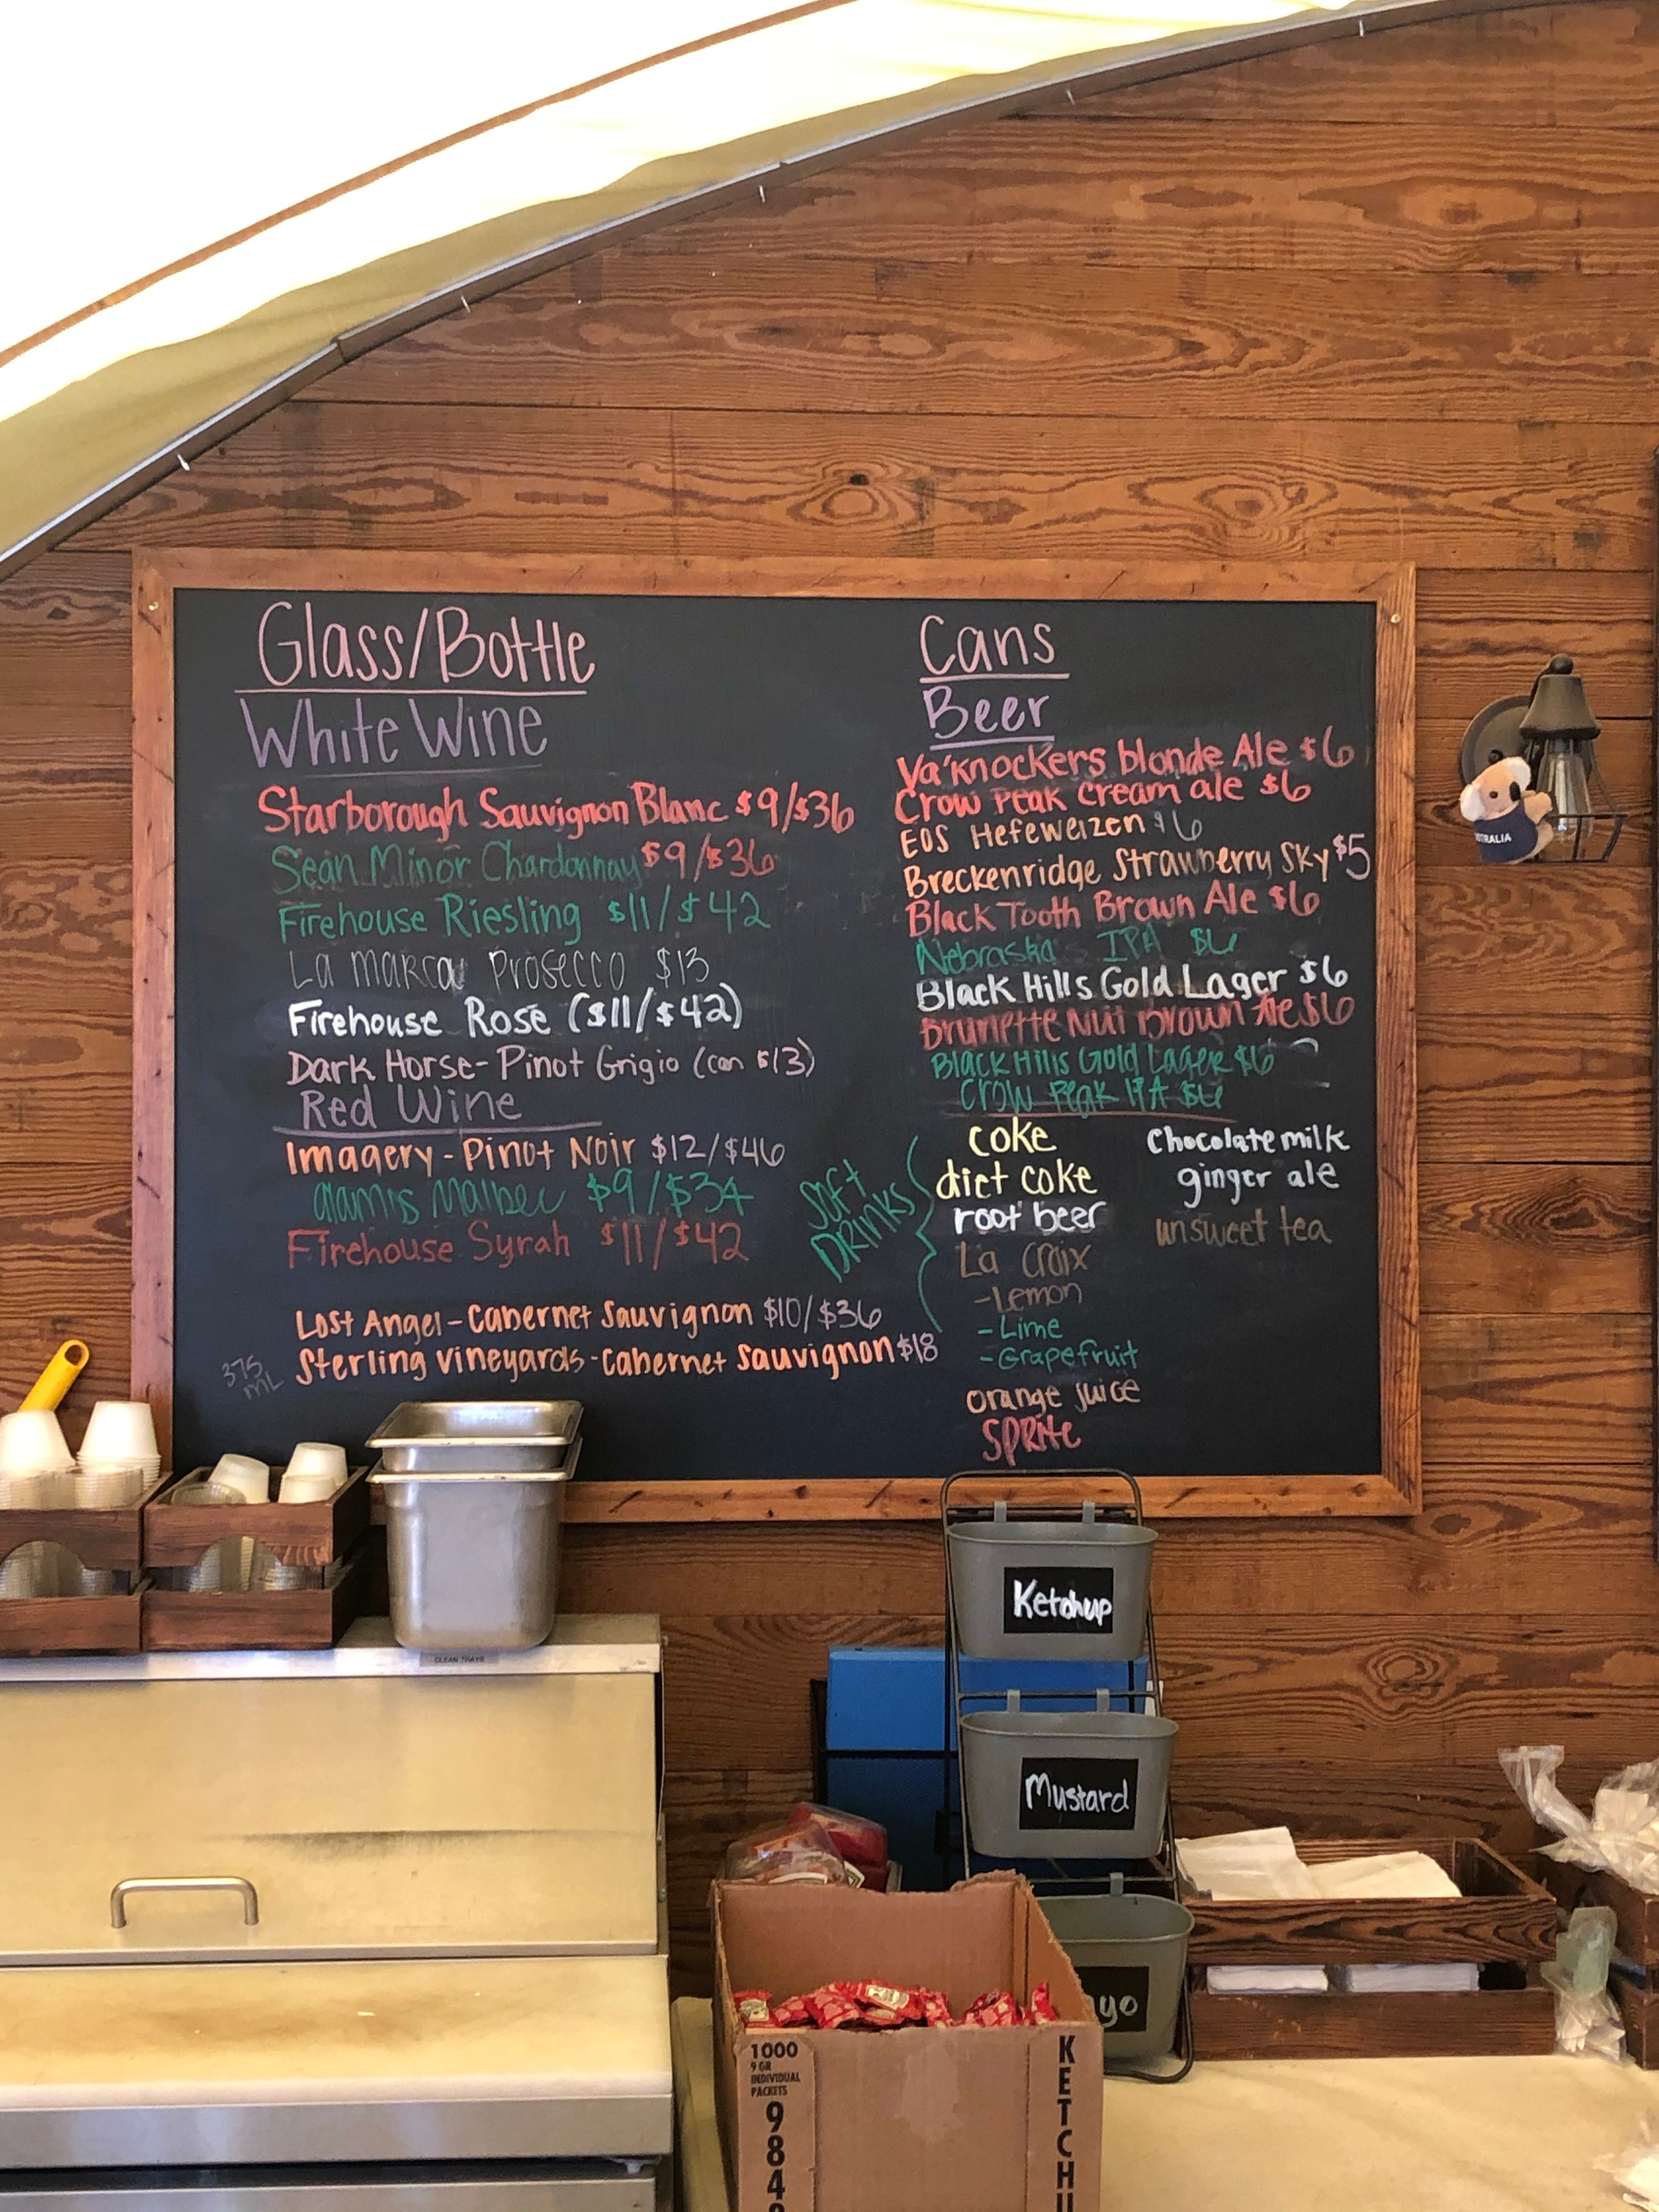 Glass/Bottle
White Wine
Starborough Sauvignon Blanc $9/$36
Sean Minor Chardonnay $9/$36
Firehouse Riesling $11/$42
La Marca Prosecco $13
Firehouse Rose ($11/$42)
Dark Horse - Pinot Grigio (can $13)
Red Wine
Imagery - Pinot Noir $12/$46
alamis Malbec $9/$34
Firehouse Syrah $11/$42
Lost Angel - Cabernet Sauvignon $10/$36
375 mL
Sterling Vineyards - Cabernet Sauvignon $18
Cans
Beer
Va'Knockers blonde Ale $6
Crow Peak Cream ale $6
EOS Hefeweizen $6
Breckenridge Strawberry Sky $5
Black Tooth Brown Ale $6
Nebraska IPA $6
Black Hills Gold Lager $6
Brunette Nut Brown Ale $6
Black Hills Gold Lager $6
Crow Peak IPA $6
Soft Drinks
coke
diet coke
root beer
La Croix
- Lemon
- Lime
- Grapefruit
orange juice
Sprite
Chocolate milk
ginger ale
unsweet tea
TRALIA
CLEAN TRAYS
Ketchup
Mustard
ayo
1000
9 GR
INDIVIDUAL
PACKETS
984
KETCHU